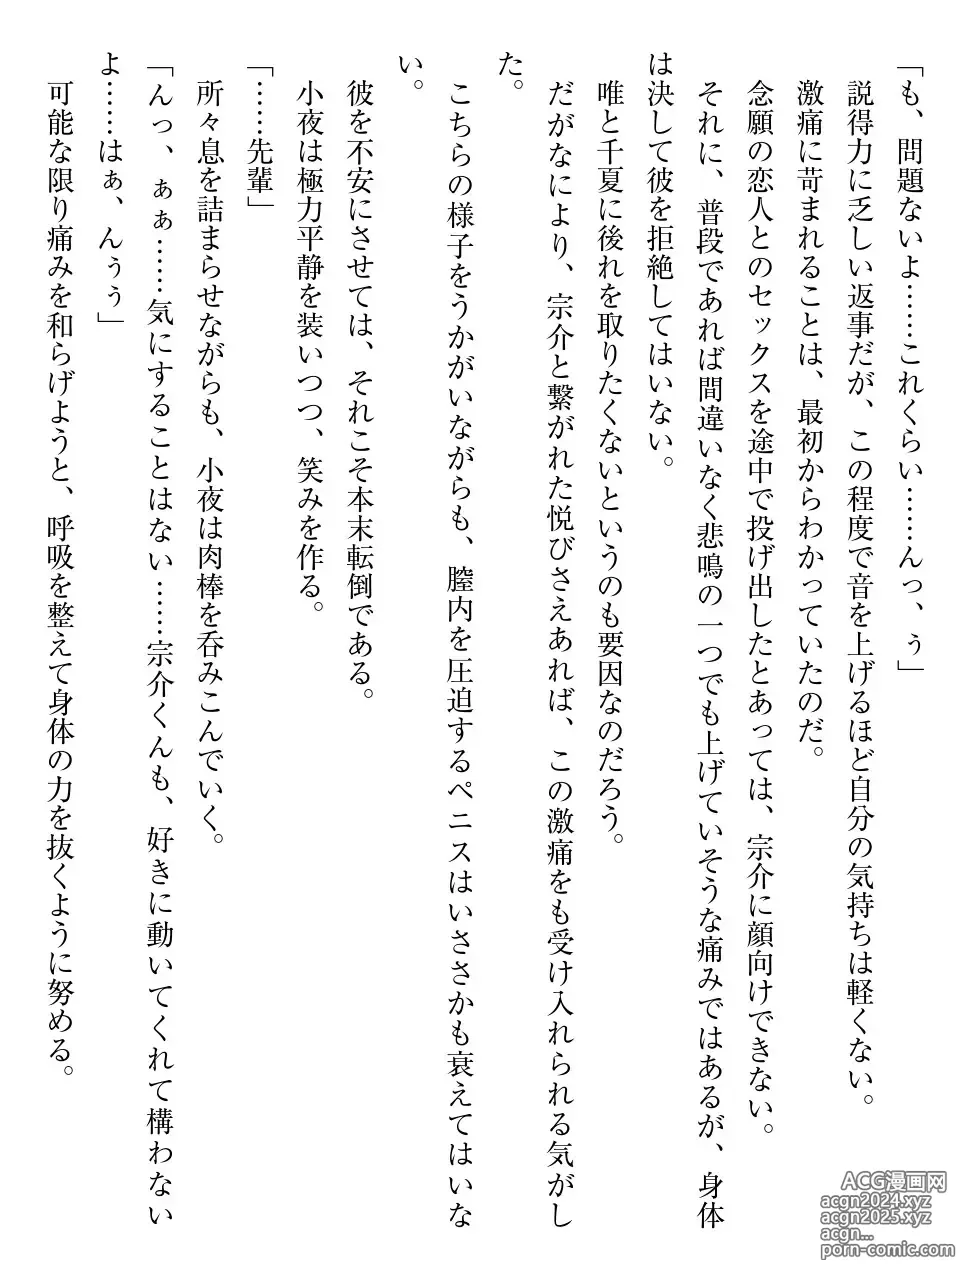 「も、問題ないよ……これくらい……んっ、ぅ」
説得力に乏しい返事だが、この程度で音を上げるほど自分の気持ちは軽くない。
激痛に苛まれることは、最初からわかっていたのだ。
念願の恋人とのセックスを途中で投げ出したとあっては、宗介に顔向けできない。
それに、普段であれば間違いなく悲鳴の一つでも上げていそうな痛みではあるが、身体
は決して彼を拒絶してはいない。
唯と千夏に後れを取りたくないというのも要因なのだろう。
だがなにより、宗介と繋がれた悦びさえあれば、この激痛をも受け入れられる気がし
た。
こちらの様子をうかがいながらも、膣内を圧迫するペニスはいささかも衰えてはいな
い。
彼を不安にさせては、それこそ本末転倒である。
小夜は極力平静を装いつつ、笑みを作る。
「……先輩」
所々息を詰まらせながらも、小夜は肉棒を呑みこんでいく。
「んっ、ぁぁ……気にすることはない……宗介くんも、好きに動いてくれて構わない
よ……はぁ、んぅぅ」
可能な限り痛みを和らげようと、呼吸を整えて身体の力を抜くように努める。
ACG漫画网
acgn2024.xyz
acgn2025.xyz
acgn...
porn-comic.com